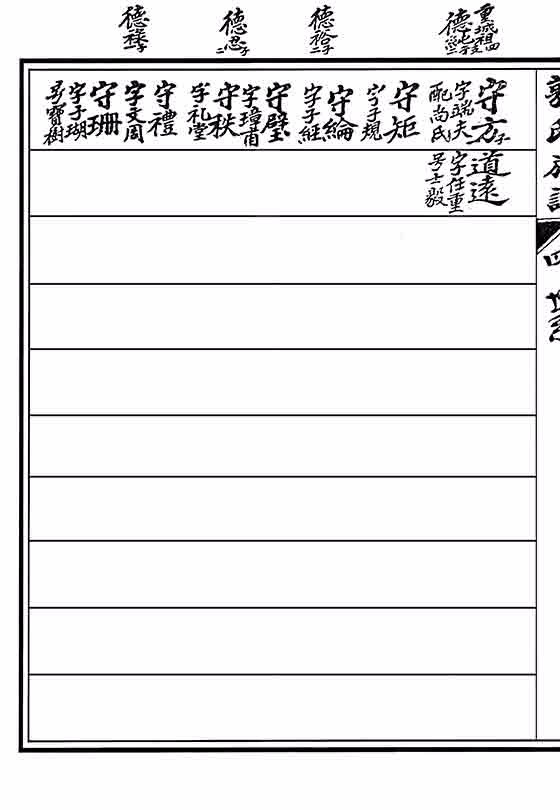 郭氏族譜
四 世系
重城祖四
德
守方子
字端夫
配尚氏
道遠
字任重
号士毅
守矩
字子規
德裕子二
守綸
字子經
守璧
字璋甫
德忍子二
守秩
字礼堂
守禮
字文周
德祿子
守珊
字子瑚
号寶樹